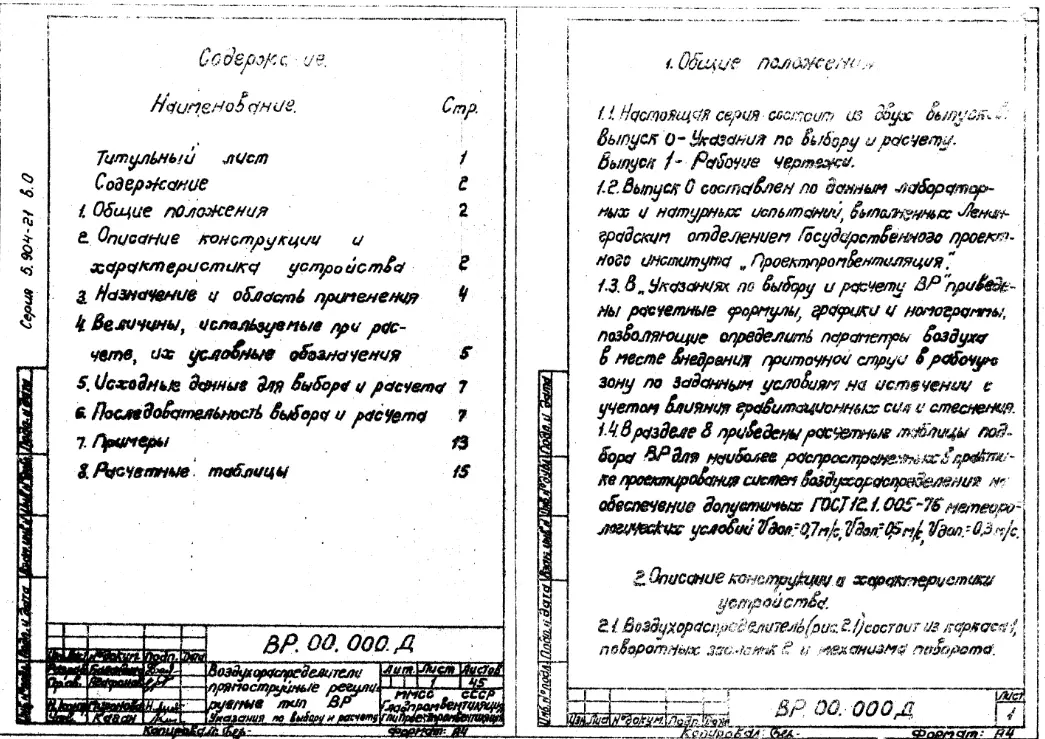 Серия 5.904-21 В.0
Содержание.
Наименование. Стр.
Титульный лист 1
Содержание 2
1. Общие положения 2
2. Описание конструкции и
характеристика устройства 2
3. Назначение и область применения 4
4. Величины, используемые при рас-
чете, их условные обозначения 5
5. Исходные данные для выбора и расчета 7
6. Последовательность выбора и расчета 7
7. Примеры 13
8. Расчетные таблицы 15
ВР. 00. 000. Д
№ докум. Подп. Дата
Воздухораспределители
прямоструйные регули-
руемые тип ВР
Указания по выбору и расчету
Лит. Лист Листов
1 45
ММСС СССР
Главпромвентиляция
Копировал: Бер.- Формат: А4
1. Общие положения
1.1. Настоящая серия состоит из двух выпусков:
Выпуск 0 - Указания по выбору и расчету.
Выпуск 1 - Рабочие чертежи.
1.2. Выпуск 0 составлен по данным лаборатор-
ных и натурных испытаний, выполненных Ленин-
градским отделением Государственного проект-
ного института „Проектпромвентиляция".
1.3. В „Указаниях по выбору и расчету ВР" приведе-
ны расчетные формулы, графики и номограммы,
позволяющие определить параметры воздуха
в месте внедрения приточной струи в рабочую
зону по заданным условиям на истечении с
учетом влияния гравитационных сил и стеснения.
1.4. В разделе 8 приведены расчетные таблицы под-
бора ВР для наиболее распространенных в практи-
ке проектирования систем воздухораспределения на
обеспечение допустимых ГОСТ 12.1.005-76 метеоро-
логических условий Vдоп.=0,7м/с, Vдоп.=0,5м/с, Vдоп.=0,3м/с.
2. Описание конструкции и характеристики
устройства.
2.1. Воздухораспределитель (рис. 2.1) состоит из каркаса 1,
поворотных заслонок 2 и механизма поворота.
ВР. 00. 000 Д
Лист
1
Изм. Лист № докум. Подп. Дата
Копировал: Бер.- Формат: А4